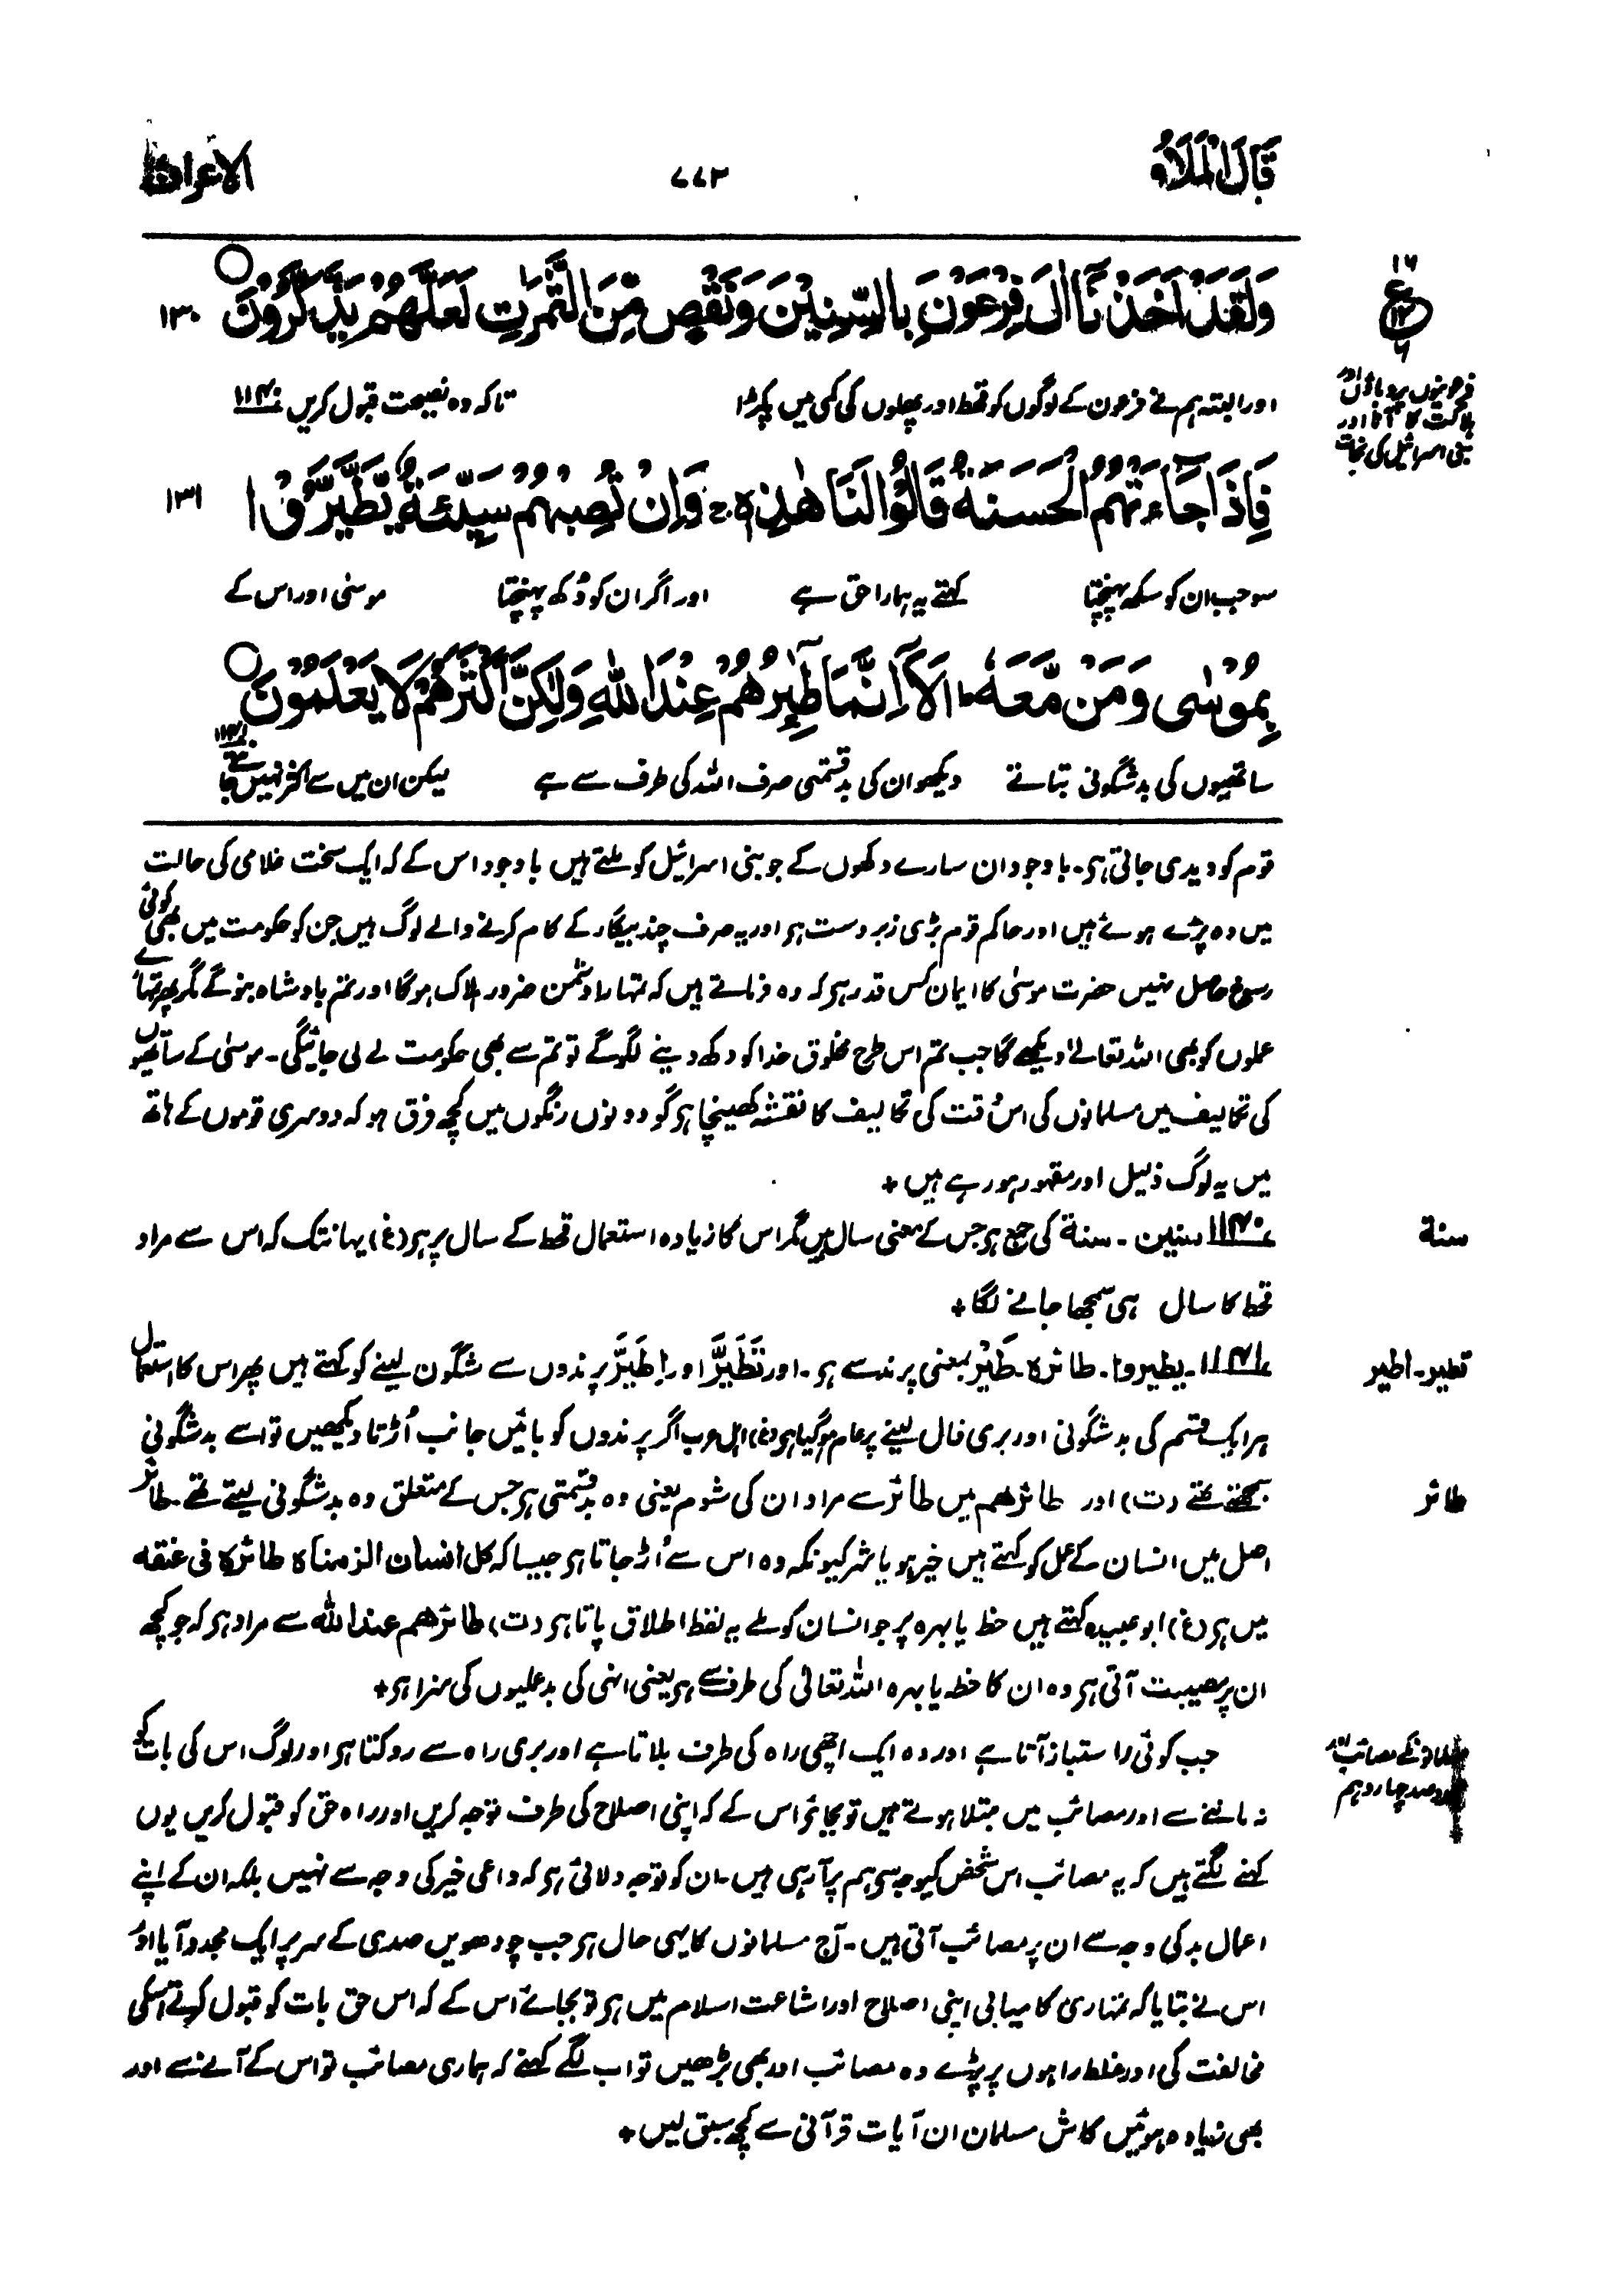 قَالَ الْمَلَاُ ۹
۷۷۳
الاعراف
وَلَقَدْ اَخَذْنَآ اٰلَ فِرْعَوْنَ بِالسِّنِيْنَ وَنَقْصٍ مِّنَ الثَّمَرٰتِ لَعَلَّهُمْ يَذَّكَّرُوْنَ ○ ۱۳۰
اور البتہ ہم نے فرعون کے لوگوں کو قحط اور پھلوں کی کمی میں پکڑا تاکہ وہ نصیحت قبول کریں ۱۱۴۰
فرعونیوں پر وباؤں اور
ہلاکت کا آنا اور
بنی اسرائیل کی نجات
فَاِذَا جَآءَتْهُمُ الْحَسَنَةُ قَالُوْا لَنَا هٰذِهٖ ۚ وَاِنْ تُصِبْهُمْ سَيِّئَةٌ يَّطَّيَّرُوْا ۱۳۱
سو جب ان کو سکھ پہنچتا کہتے یہ ہمارا حق ہے اور اگر ان کو دُکھ پہنچتا موسٰی اور اس کے
بِمُوْسٰى وَمَنْ مَّعَهٗ ؕ اَلَآ اِنَّمَا طٰٓئِرُهُمْ عِنْدَ اللّٰهِ وَلٰكِنَّ اَكْثَرَهُمْ لَا يَعْلَمُوْنَ ○
ساتھیوں کی بدشگونی بتاتے دیکھو ان کی بدقسمتی صرف اللہ کی طرف سے ہے لیکن ان میں سے اکثر نہیں جانتے ۱۱۴۱
قوم کو دیدی جاتی ہے۔ باوجود ان سارے دکھوں کے جو بنی اسرائیل کو ملتے ہیں باوجود اس کے کہ ایک سخت غلامی کی حالت
میں وہ پڑے ہوئے ہیں اور حاکم قوم بڑی زبردست ہے اور یہ صرف چند بیگار کے کام کرنے والے لوگ ہیں جن کو حکومت میں بھی کوئی
رسوخ حاصل نہیں حضرت موسیٰ کا ایمان کس قدر ہے کہ وہ فرماتے ہیں کہ تمہارا دشمن ضرور ہلاک ہوگا اور تم بادشاہ بنو گے مگر پھر تمہارے
عملوں کو بھی اللہ تعالےٰ دیکھے گا جب تم اس طرح مخلوق خدا کو دکھ دینے لگو گے تو تم سے بھی حکومت لے لی جائیگی۔ موسیٰ کے ساتھیوں
کی تکالیف میں مسلمانوں کی اس وقت کی تکالیف کا نقشہ کھینچا ہے گو دونوں رنگوں میں کچھ فرق ہو کہ دوسری قوموں کے ہاتھ
میں یہ لوگ ذلیل اور مقہور ہو رہے ہیں +
سنة
۱۱۴۰ سنین۔ سنة کی جمع ہے جس کے معنی سال ہیں مگر اس کا زیادہ استعمال قحط کے سال پر ہے (غ) یہانتک کہ اس سے مراد
قحط کا سال ہی سمجھا جانے لگا +
تطیر۔ اطیر
۱۱۴۱۔ یطیروا۔ طائرہ۔ طَیْر بمعنی پرند سے ہے۔ اور تَطَیَّرَ اور اِطَّیَّرَ پرندوں سے شگون لینے کو کہتے ہیں پھر اس کا استعمال
ہر ایک قسم کی بدشگونی اور بری فال لینے پر عام ہوگیا ہے (غ) اہل عرب اگر پرندوں کو بائیں جانب اُڑتا دیکھیں تو اسے بدشگونی
طائر
سمجھتے تھے (ت) اور طائرھم میں طائر سے مراد ان کی شوم یعنی وہ بدقسمتی ہے جس کے متعلق وہ بدشگونی لیتے تھے۔ طائر
اصل میں انسان کے عمل کو کہتے ہیں خیر ہو یا شر کیونکہ وہ اس سے اُڑ جاتا ہے جیسا کہ کل انسان الزمناہ طائرہ فی عنقہ
میں ہے (غ) ابوعبیدہ کہتے ہیں حظ یا بہرہ پر جو انسان کو ملے یہ لفظ اطلاق پاتا ہے (ت) طائرھم عند اللہ سے مراد ہے کہ جو کچھ
ان پر مصیبت آتی ہے وہ ان کا حظ یا بہرہ اللہ تعالٰی کی طرف سے ہے یعنی انہی کی بدعملیوں کی سزا ہے +
مسلمانوں کے مصائب اور
مجدد صد چاردہم
جب کوئی راستباز آتا ہے اور وہ ایک اچھی راہ کی طرف بلاتا ہے اور بری راہ سے روکتا ہے اور لوگ اس کی بات کو
نہ ماننے سے اور مصائب میں مبتلا ہوتے ہیں تو بجائے اس کے کہ اپنی اصلاح کی طرف توجہ کریں اور راہ حق کو قبول کریں یوں
کہنے لگتے ہیں کہ یہ مصائب اس شخص کیوجہ سے ہم پر آ رہی ہیں۔ ان کو توجہ دلائی ہے کہ داعی خیر کی وجہ سے نہیں بلکہ ان کے اپنے
اعمال بد کی وجہ سے ان پر مصائب آتی ہیں۔ آج مسلمانوں کا یہی حال ہے جب چودھویں صدی کے سر پر ایک مجدد آیا اور
اس نے بتایا کہ تمہاری کامیابی اپنی اصلاح اور اشاعت اسلام میں ہے تو بجائے اس کے کہ اس حق بات کو قبول کرتے اسکی
مخالفت کی اور غلط راہوں پر پڑے وہ مصائب اور بھی بڑھیں تو اب لگے کہنے کہ ہماری مصائب تو اس کے آنے سے اور
بھی زیادہ ہوئیں کاش مسلمان ان آیات قرآنی سے کچھ سبق لیں +